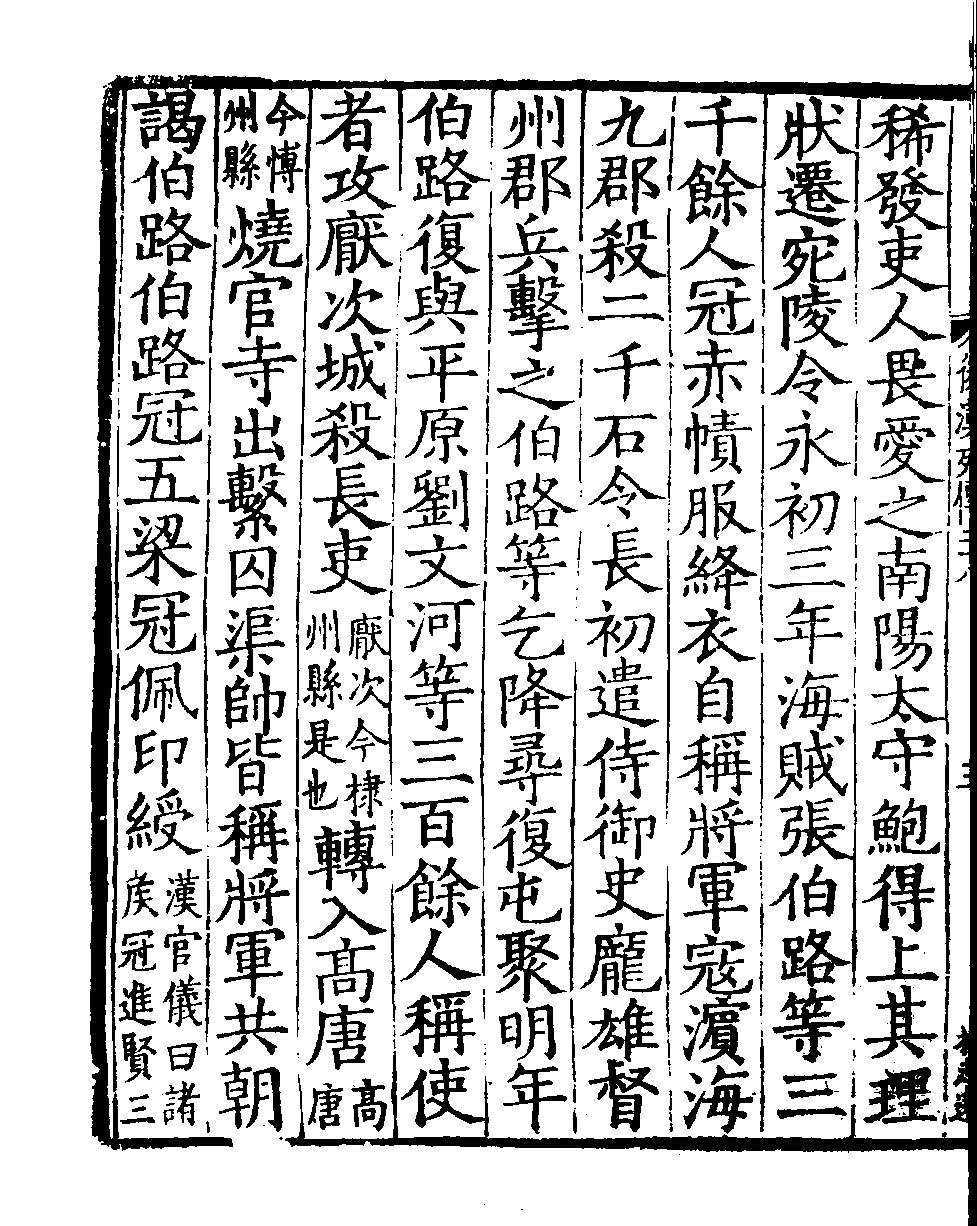 稀發吏人畏愛之南陽太守鮑得上其理
狀遷宛陵令永初三年海賊張伯路等三
千餘人冠赤幘服絳衣自稱將軍寇濱海
九郡殺二千石令長初遣侍御史龐雄督
州郡兵擊之伯路等乞降尋復屯聚明年
伯路復與平原劉文河等三百餘人稱使
者攻厭次城殺長吏厭次今棣州縣是也轉入高唐高唐
今博州縣燒官寺出繫囚渠帥皆稱將軍共朝
謁伯路伯路冠五梁冠佩印綬漢官儀曰諸侯冠進賢三